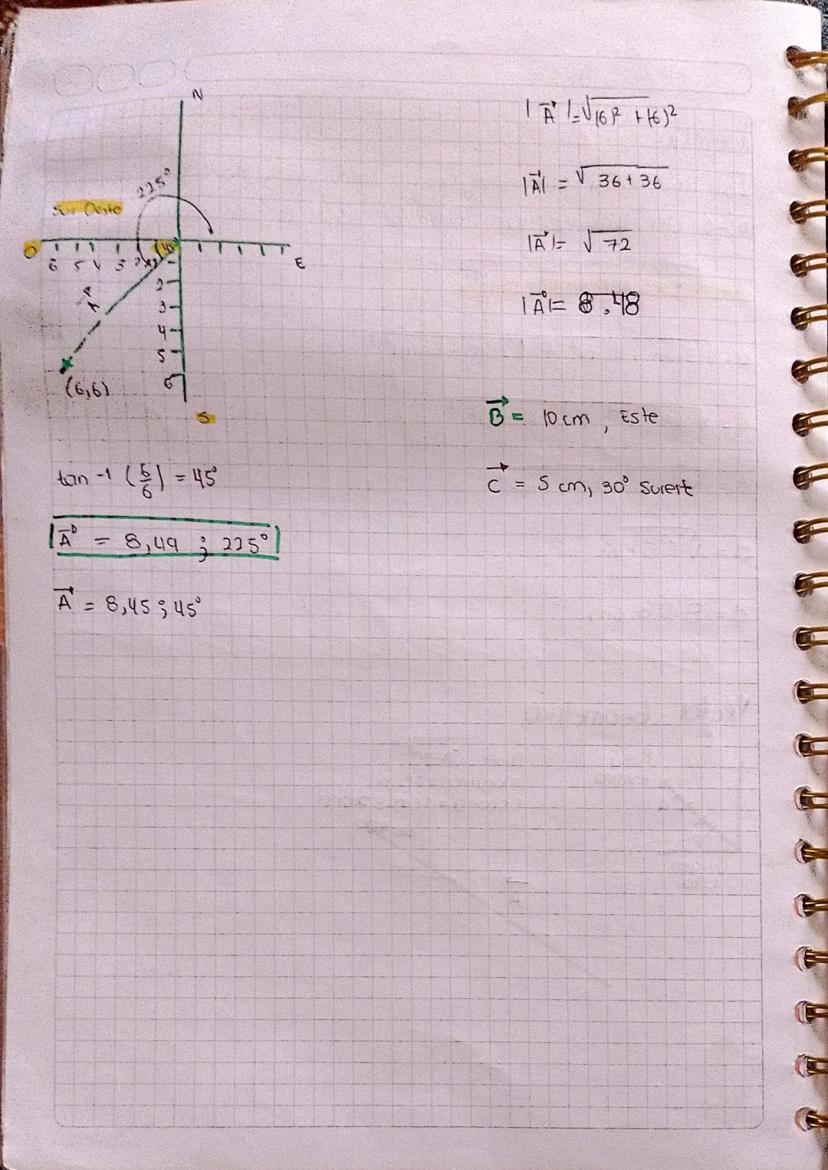 N
225°
Sur Oeste
O
6 5 4 3 2 1
E
A
2
3
4
5
6
(6,6)
S
tan⁻¹ (6/6) = 45°
A = 8,49 ; 225°
A = 8,45 ; 45°
|A| = √(6)² + (6)²
|A| = √36 + 36
|A| = √72
|A| = 8,48
B = 10 cm, Este
C = 5 cm, 30°